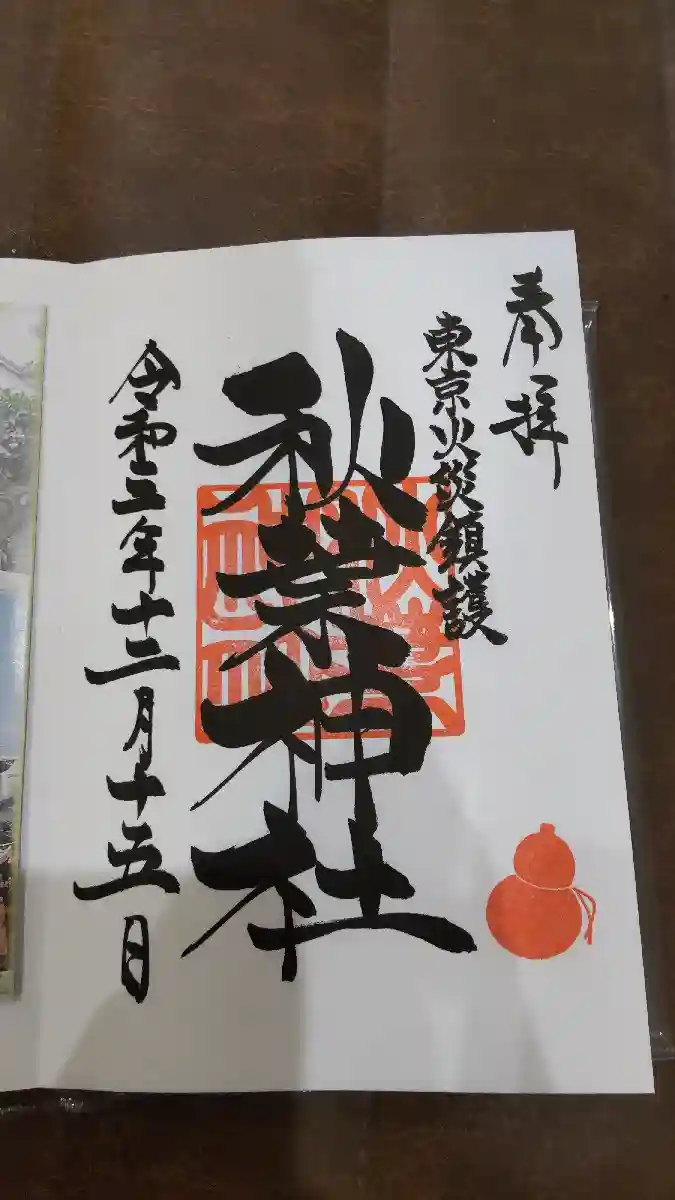 奉拝
東京火災鎮護
秋葉神社
令和三年十二月十五日